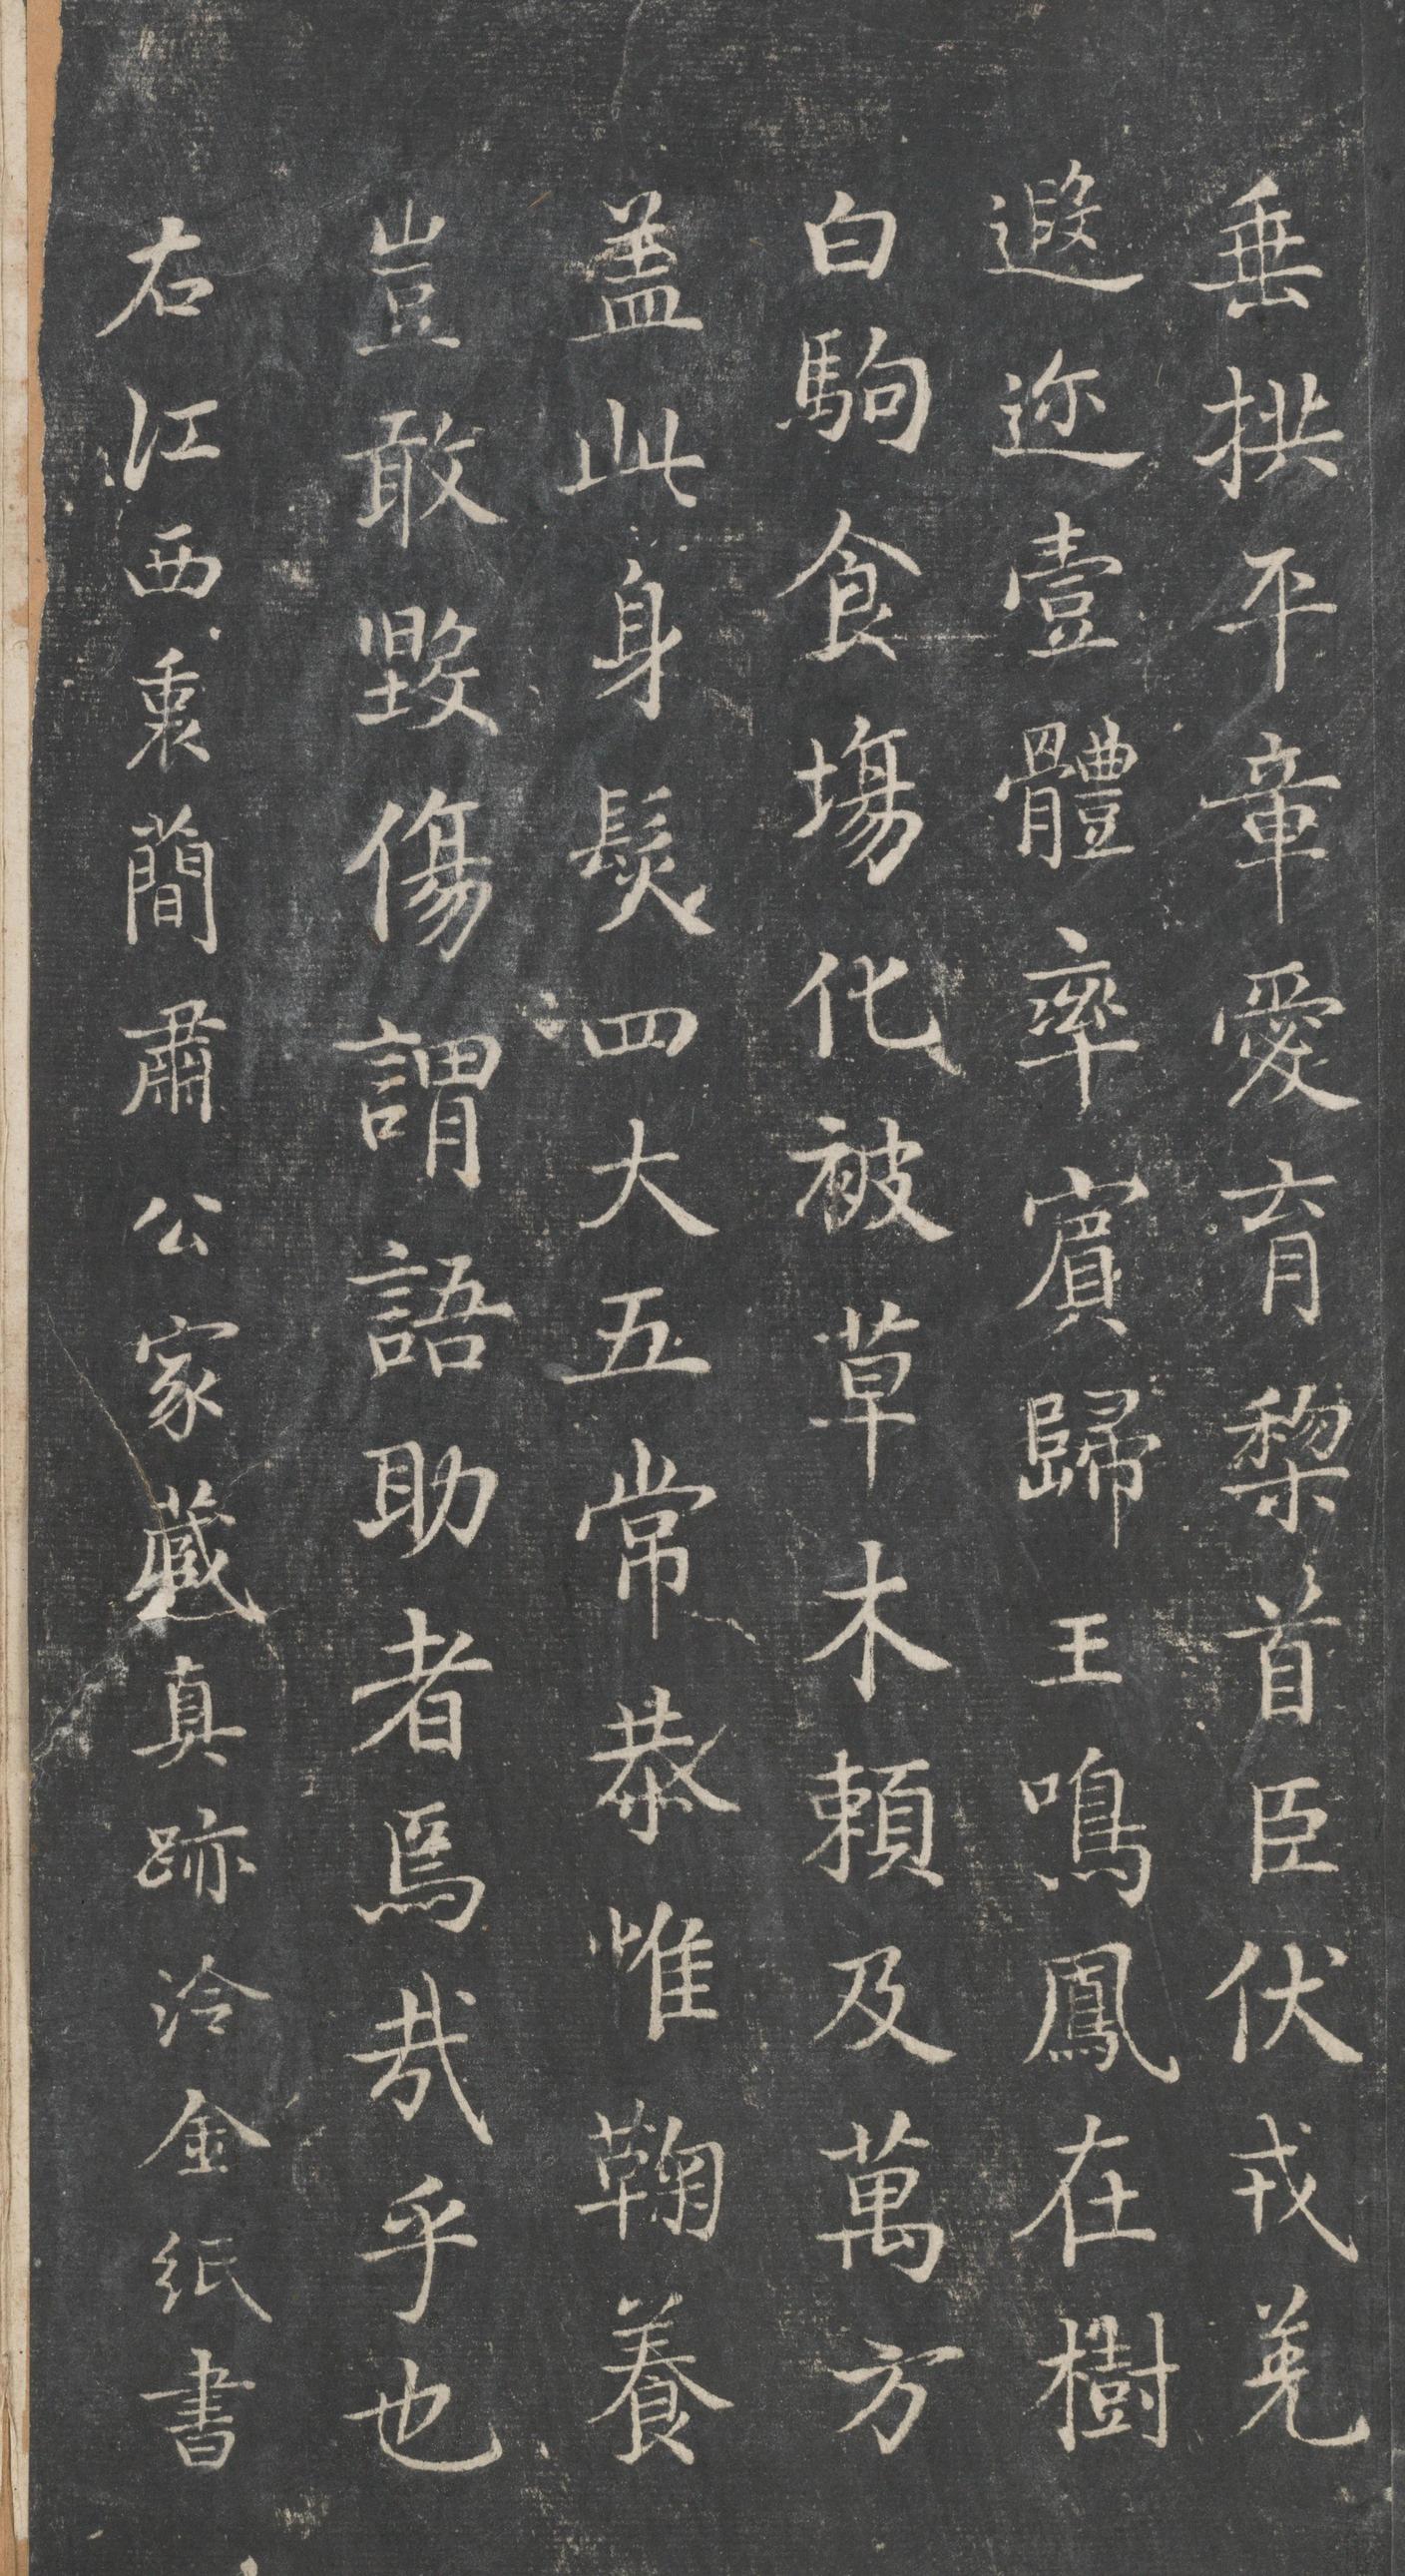 垂拱平章愛育黎首臣伏戎羌
遐迩壹體率賓歸王鳴鳳在樹
白駒食場化被草木賴及萬方
蓋此身髮四大五常恭惟鞠養
豈敢毀傷謂語助者焉哉乎也
右江西裏簡肅公家藏真跡泠金紙書